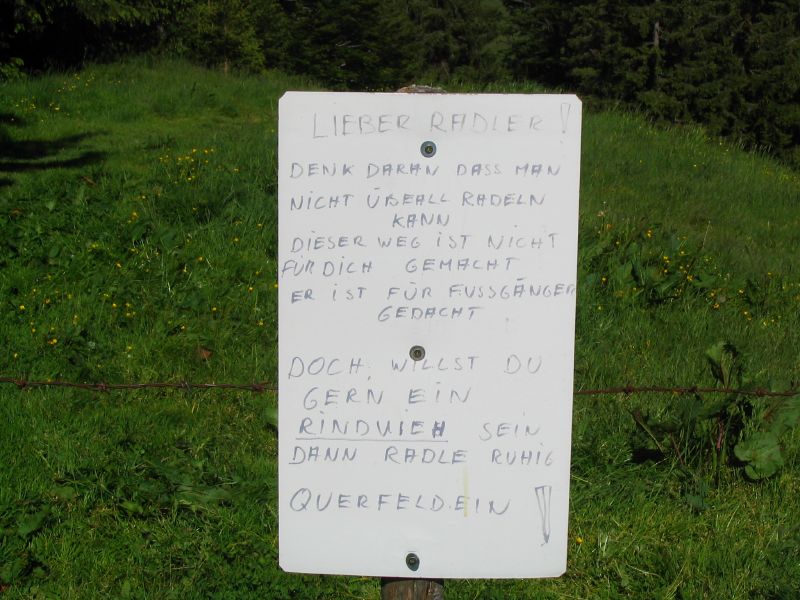 LIEBER RADLER!
DENK DARAN DASS MAN
NICHT ÜBEALL RADELN
KANN
DIESER WEG IST NICHT
FÜR DICH GEMACHT
ER IST FÜR FUSSGÄNGER
GEDACHT.
DOCH, WILLST DU
GERN EIN
RINDVIEH SEIN
DANN RADLE RUHIG
QUERFELDEIN!